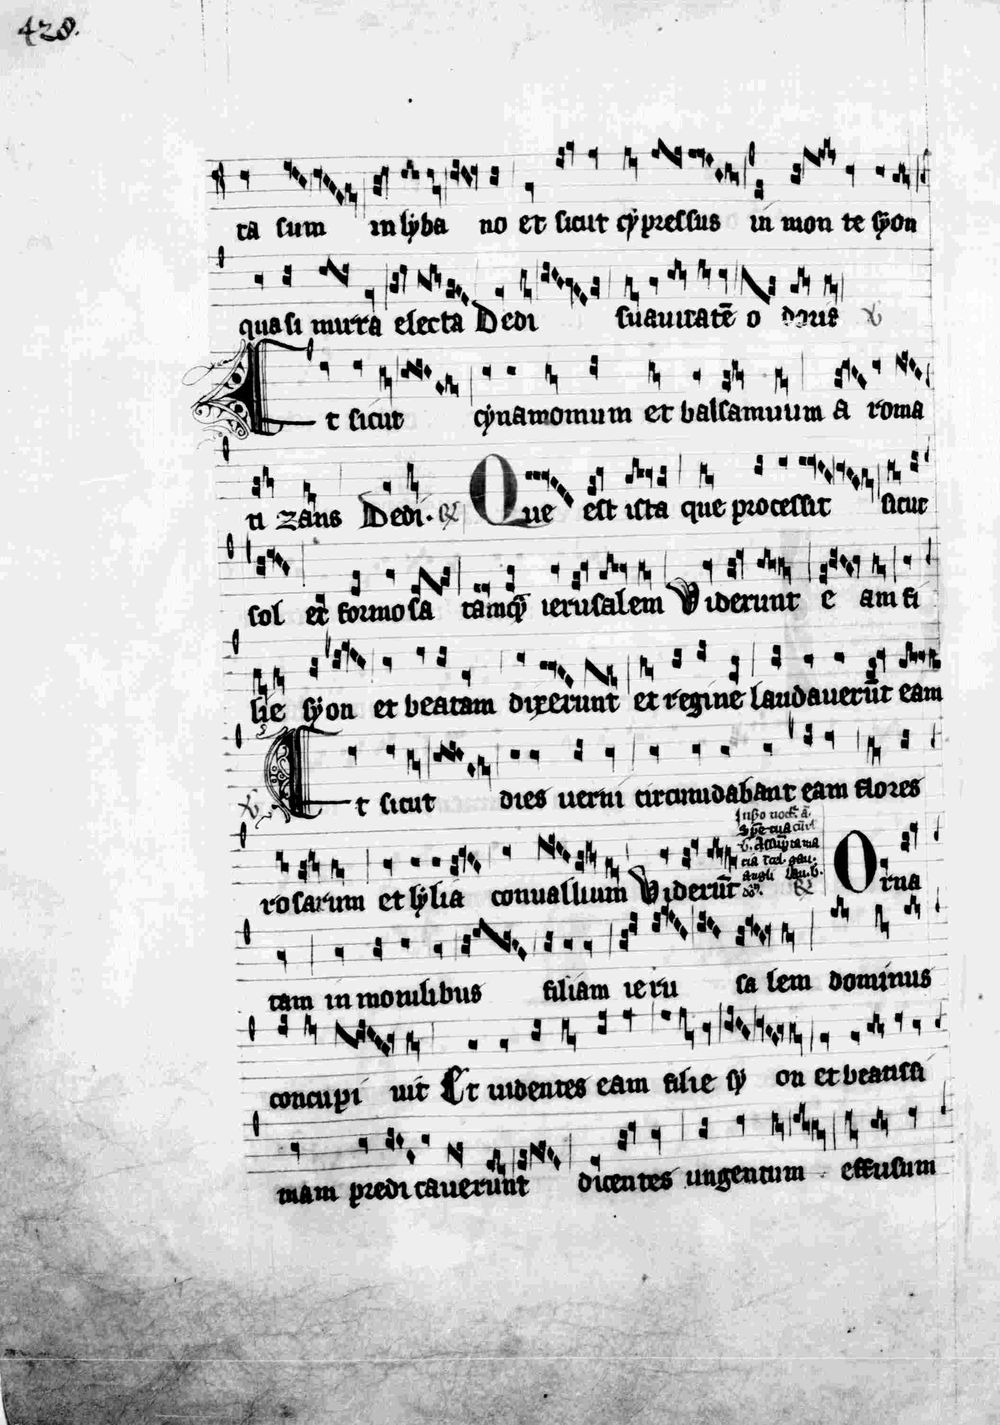 428.
ta sum in lyba no et sicut cypressus in mon te syon
quasi mirra electa Dedi suauitatē o doris ℣
Et sicut cynamomum et balsamuum a roma
ti zans Dedi. ℟ Que est ista que processit sicut
sol et formosa tamq̄ ierusalem Viderunt e am fi
lie syon et beatam dixerunt et regine laudauerūt eam
℣ Et sicut dies uerni circumdabant eam flores
rosarum et lylia conuallium Viderūt ℟ Orna
tam in monilibus filiam ieru sa lem dominus
concupi uit Et uidentes eam filie sy on et beatissi
mam predicauerunt dicentes ungentum effusum